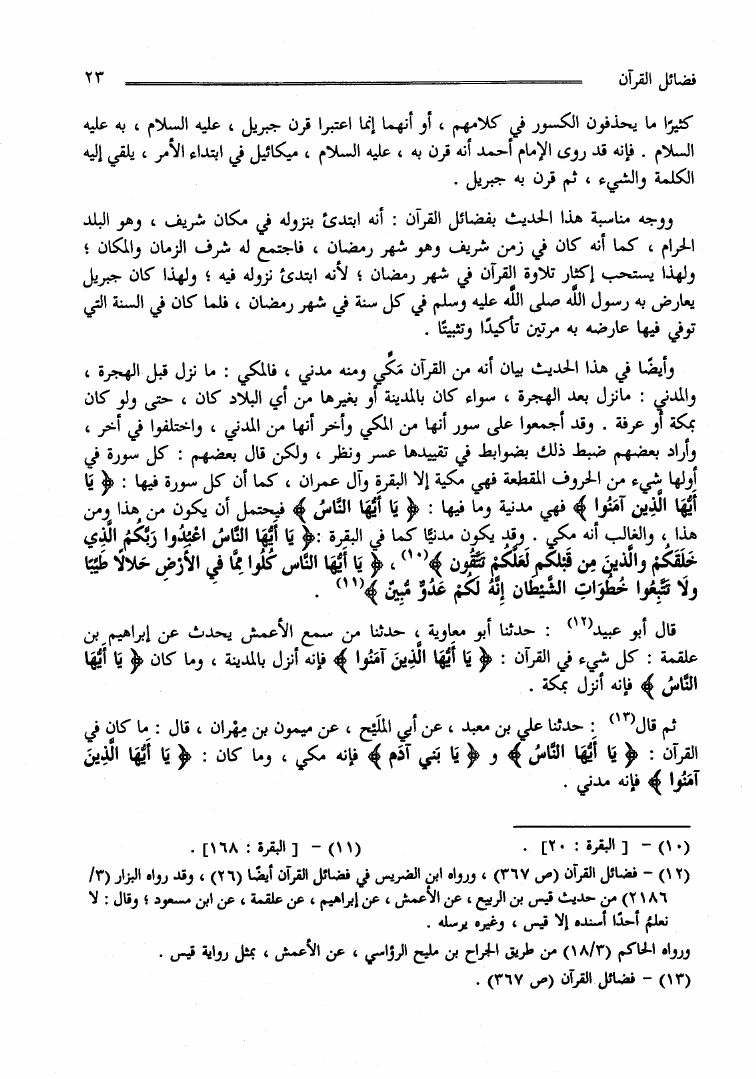 فضائل القرآن ٢٣
كثيرًا ما يحذفون الكسور في كلامهم ، أو أنهما إنما اعتبرا قرن جبريل ، عليه السلام ، به عليه
السلام . فإنه قد روى الإمام أحمد أنه قرن به ، عليه السلام ، ميكائيل في ابتداء الأمر ، يلقي إليه
الكلمة والشيء ، ثم قرن به جبريل .
ووجه مناسبة هذا الحديث بفضائل القرآن : أنه ابتدئ بنزوله في مكان شريف ، وهو البلد
الحرام ، كما أنه كان في زمن شريف وهو شهر رمضان ، فاجتمع له شرف الزمان والمكان ؛
ولهذا يستحب إكثار تلاوة القرآن في شهر رمضان ؛ لأنه ابتدئ نزوله فيه ؛ ولهذا كان جبريل
يعارض به رسول اللَّه صلى اللَّه عليه وسلم في كل سنة في شهر رمضان ، فلما كان في السنة التي
توفي فيها عارضه به مرتين تأكيدًا وتثبيتًا .
وأيضًا في هذا الحديث بيان أنه من القرآن مَكِّي ومنه مدني ، فالمكي : ما نزل قبل الهجرة ،
والمدني : مانزل بعد الهجرة ، سواء كان بالمدينة أو بغيرها من أي البلاد كان ، حتى ولو كان
بمكة أو عرفة . وقد أجمعوا على سور أنها من المكي وأخر أنها من المدني ، واختلفوا في أخر ،
وأراد بعضهم ضبط ذلك بضوابط في تقييدها عسر ونظر ، ولكن قال بعضهم : كل سورة في
أولها شيء من الحروف المقطعة فهي مكية إلا البقرة وآل عمران ، كما أن كل سورة فيها : ﴿ يَا
أَيُّهَا الَّذِين آمَنُوا ﴾ فهي مدنية وما فيها : ﴿ يَا أَيُّهَا النَّاسُ ﴾ فيحتمل أن يكون من هذا ومن
هذا ، والغالب أنه مكي . وقد يكون مدنيًا كما في البقرة :﴿ يَا أَيُّهَا النَّاسُ اعْبُدُوا رَبَّكُمُ الَّذِي
خَلَقَكُمْ والَّذِينَ مِن قَبْلِكُم لَعَلَّكُمْ تَتَّقُون ﴾(١٠) ، ﴿ يَا أَيُّهَا النَّاس كُلُوا مِمَّا فِي الأَرْضِ حَلالًا طَيِّبًا
ولَا تَتَّبِعُوا خُطُوَاتِ الشَّيْطَان إِنَّهُ لَكُمْ عَدُوٌّ مُّبِينٌ ﴾(١١) .
قال أبو عبيد(١٢) : حدثنا أبو معاوية ، حدثنا من سمع الأعمش يحدث عن إبراهيم بن
علقمة : كل شيء في القرآن : ﴿ يَا أَيُّهَا الَّذِينَ آمَنُوا ﴾ فإنه أنزل بالمدينة ، وما كان ﴿ يَا أَيُّهَا
النَّاسُ ﴾ فإنه أنزل بمكة .
ثم قال(١٣) : حدثنا علي بن معبد ، عن أبي المَلِيْح ، عن ميمون بن مِهْران ، قال : ما كان في
القرآن : ﴿ يَا أَيُّهَا النَّاسُ ﴾ و ﴿ يَا بَنِي آدَم ﴾ فإنه مكي ، وما كان : ﴿ يَا أَيُّهَا الَّذِينَ
آمَنُوا ﴾ فإنه مدني .
(١٠) – [ البقرة : ٢٠] . (١١) – [ البقرة : ١٦٨] .
(١٢) – فضائل القرآن (ص ٣٦٧) ، ورواه ابن الضريس في فضائل القرآن أيضًا (٢٦) ، وقد رواه البزار (٣/
٢١٨٦) من حديث قيس بن الربيع ، عن الأعمش ، عن إبراهيم ، عن علقمة ، عن ابن مسعود ؛ وقال : لا
نعلمُ أحدًا أسنده إلا قيس ، وغيره يرسله .
ورواه الحاكم (١٨/٣) من طريق الجراح بن مليح الرؤاسي ، عن الأعمش ، بمثل رواية قيس .
(١٣) – فضائل القرآن (ص ٣٦٧) .